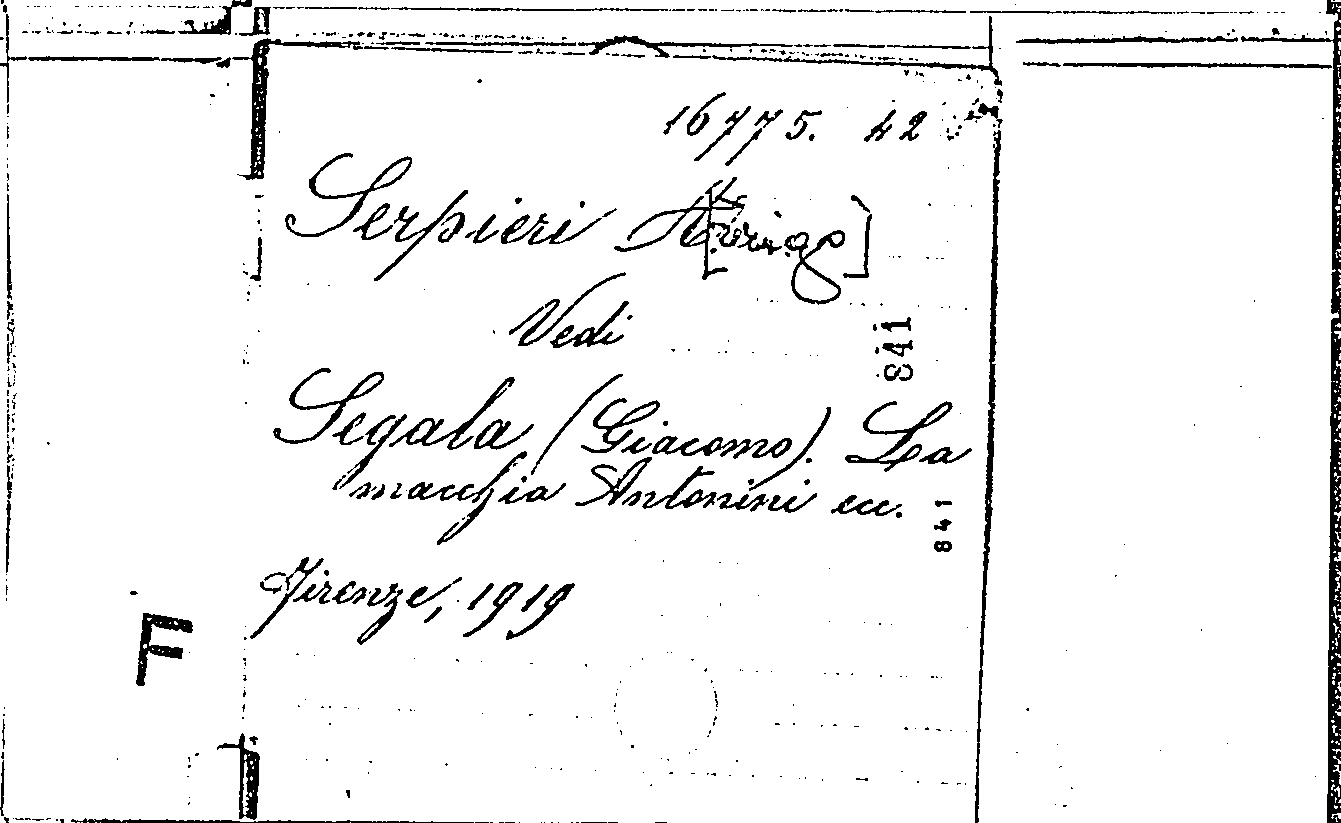 16775. 42
Serpieri A[rrigo]
Vedi
841
Segala (Giacomo). La
macchia Antonini ecc.
841
Firenze, 1919
F